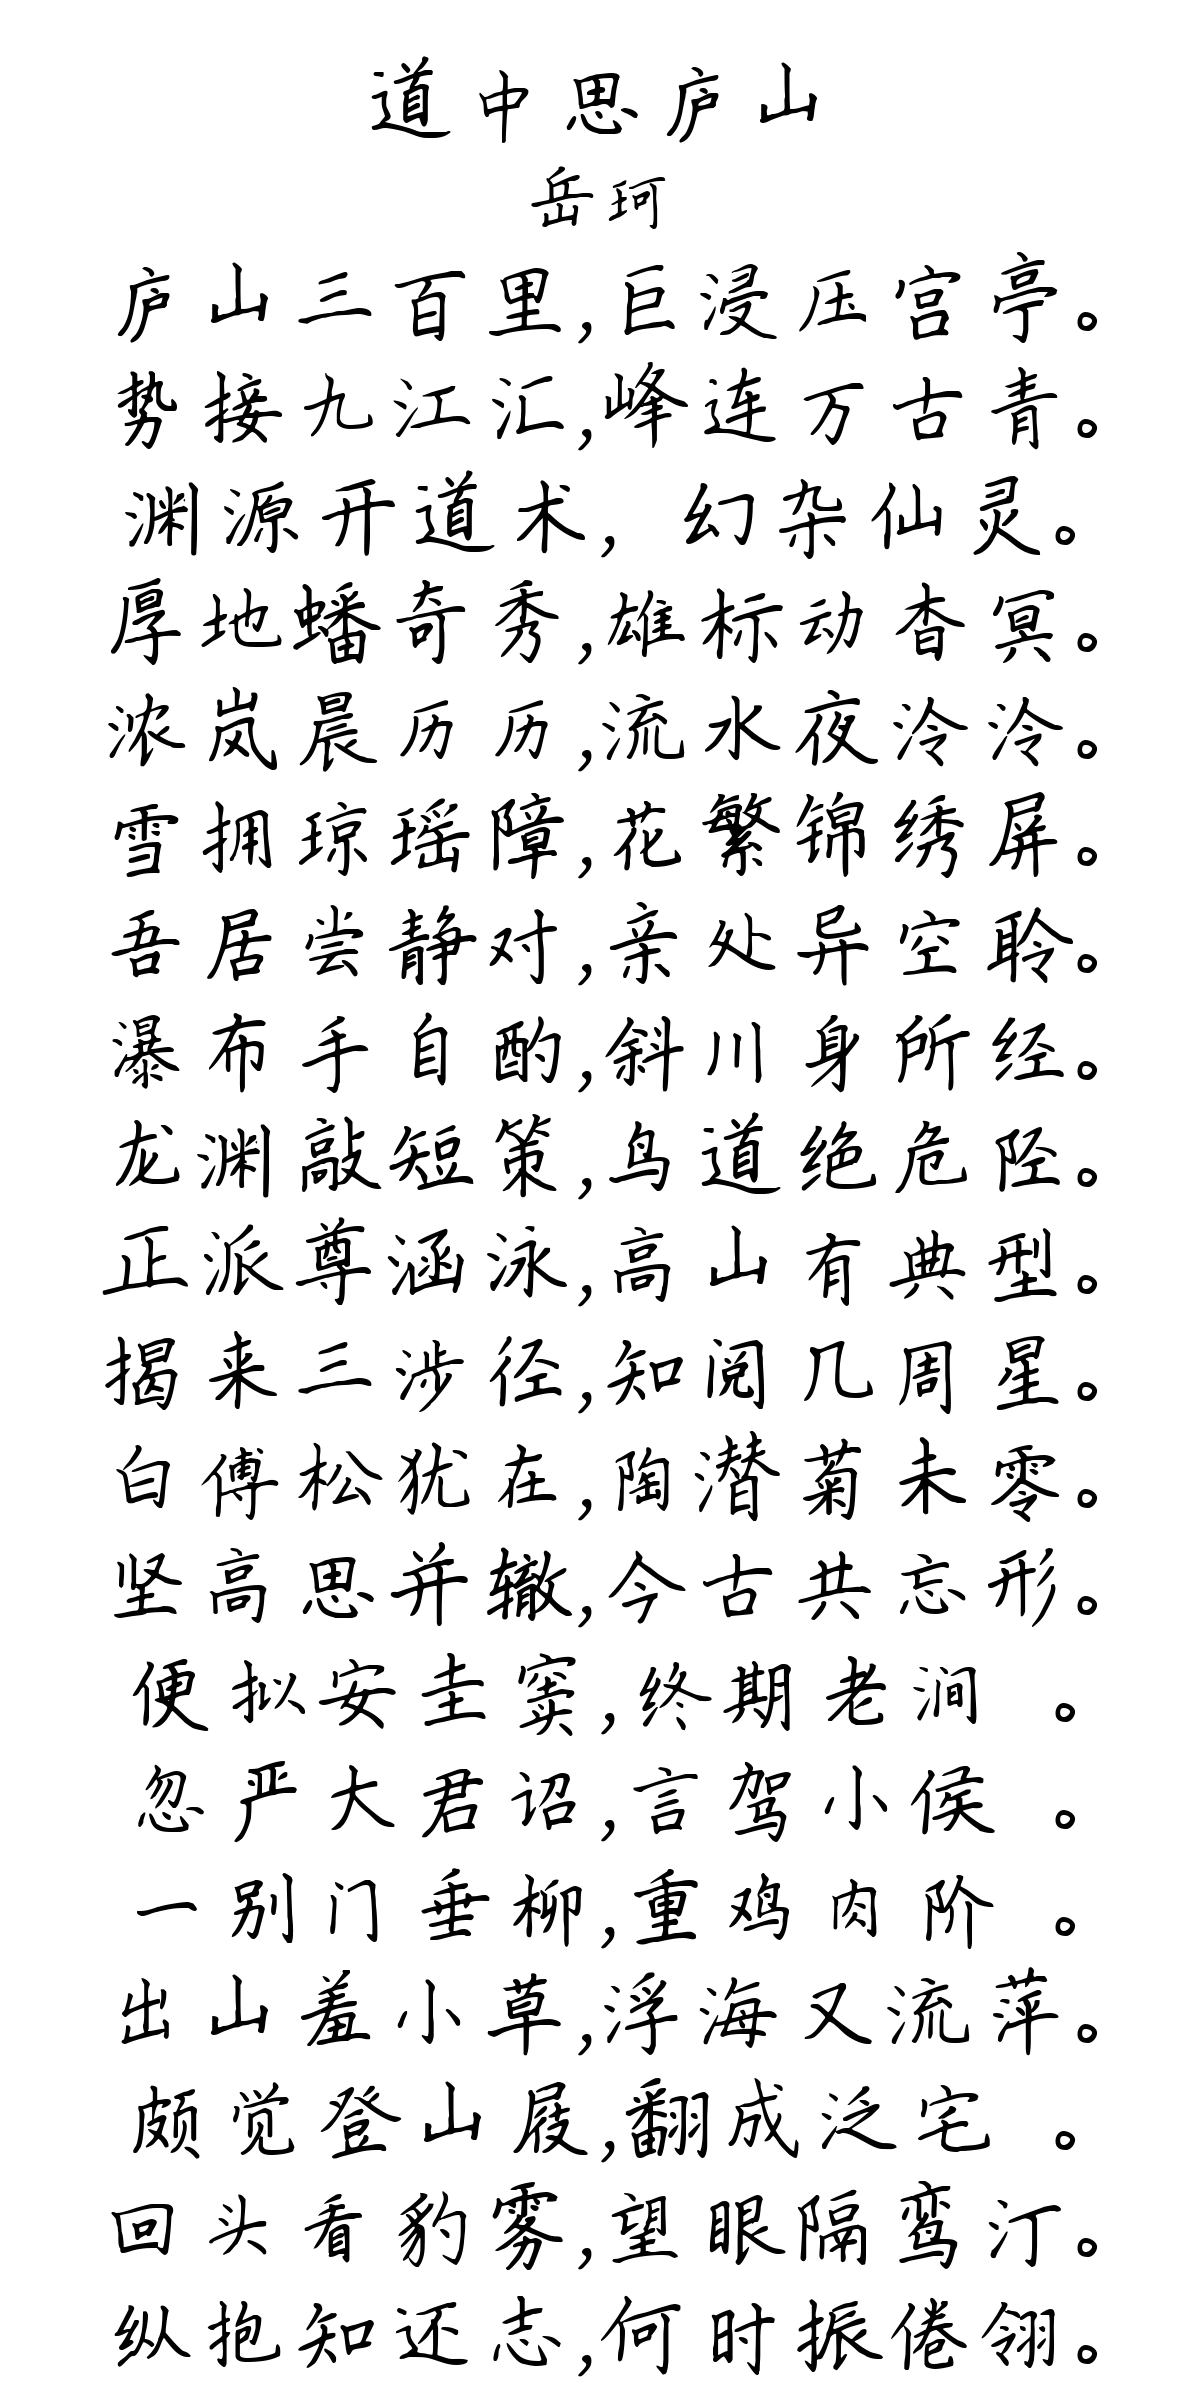 道中思庐山
岳珂
庐山三百里,巨浸压宫亭。
势接九江汇,峰连万古青。
渊源开道术, 幻杂仙灵。
厚地蟠奇秀,雄标动杳冥。
浓岚晨历历,流水夜泠泠。
雪拥琼瑶障,花繁锦绣屏。
吾居尝静对,亲处异空聆。
瀑布手自酌,斜川身所经。
龙渊敲短策,鸟道绝危陉。
正派尊涵泳,高山有典型。
揭来三涉径,知阅几周星。
白傅松犹在,陶潜菊未零。
坚高思并辙,今古共忘形。
便拟安圭窦,终期老涧 。
忽严大君诏,言驾小侯 。
一别门垂柳,重鸡肉阶 。
出山羞小草,浮海又流萍。
颇觉登山屐,翻成泛宅 。
回头看豹雾,望眼隔鸾汀。
纵抱知还志,何时振倦翎。